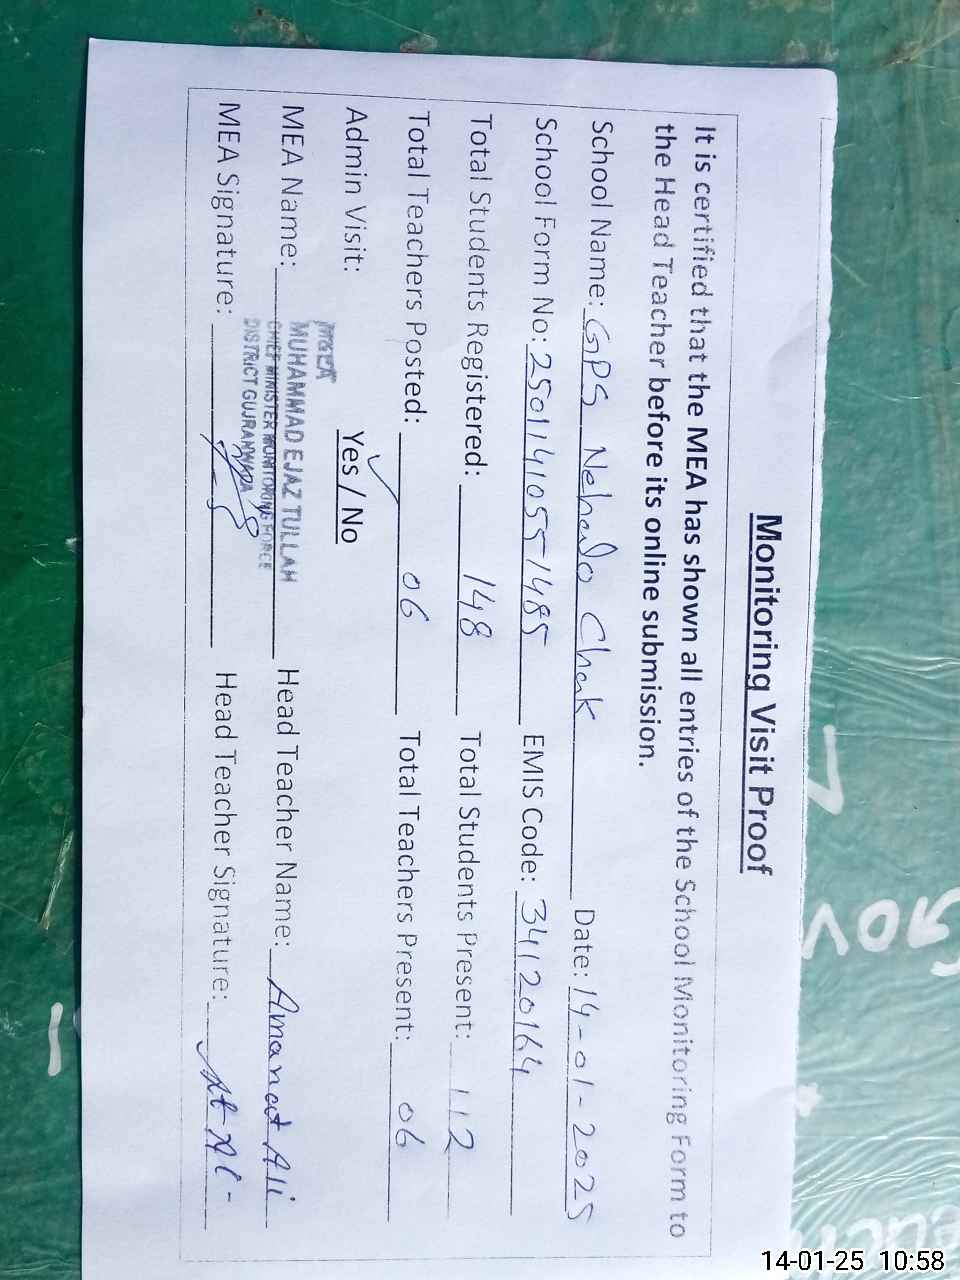 Monitoring Visit Proof
It is certified that the MEA has shown all entries of the School Monitoring Form to
the Head Teacher before its online submission.
School Name: GPS Nehalo Chak Date: 14-01-2025
School Form No: 25011410551485 EMIS Code: 34120164
Total Students Registered: 148 Total Students Present: 112
Total Teachers Posted: 06 Total Teachers Present: 06
Admin Visit: Yes / No
MEA
MEA Name: MUHAMMAD EJAZ TULLAH Head Teacher Name: Amanat Ali
CHIEF MINISTER MONITORING FORCE
DISTRICT GUJRANWALA
MEA Signature: Head Teacher Signature:
14-01-25 10:58